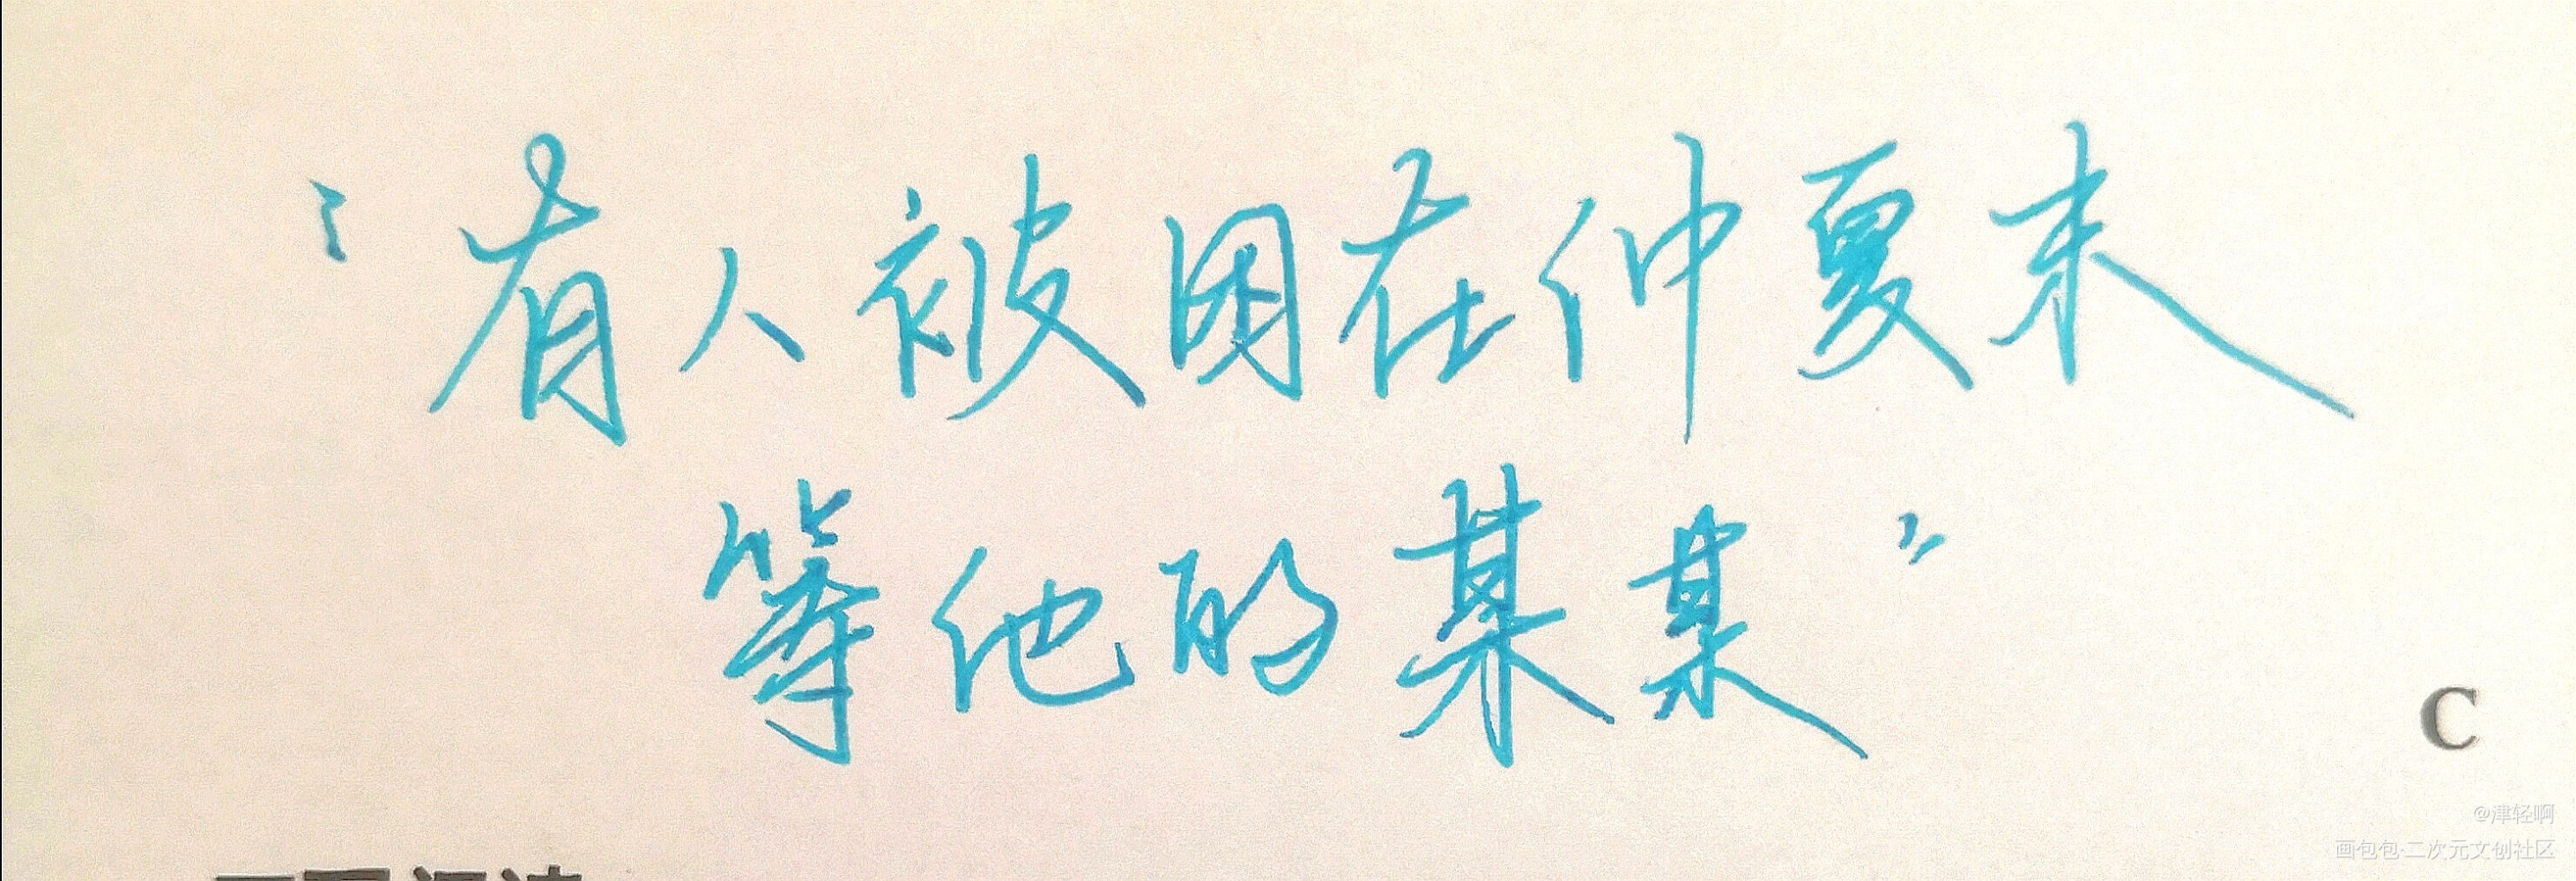 “有人被困在仲夏末
等他的某某”
C
@津轻啊
画包包·二次元文创社区